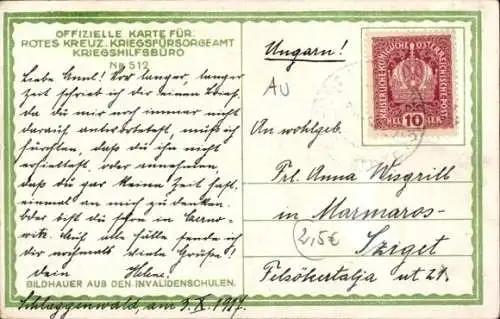 OFFIZIELLE KARTE FÜR
ROTES KREUZ, KRIEGSFÜRSORGEAMT
KRIEGSHILFSBÜRO
No 512
Liebe Annl! Vor langer, langer
Zeit schrieb ich dir einen Brief,
da du mir noch immer nicht
darauf antwortetest, muß ich
fürchten, daß du ihn nicht
erhieltest, oder annehmen,
daß du gar keine Zeit hast,
einmal an mich zu denken.
Oder bist du schon in Czerno-
witz. Auf alle Fälle sende ich
dir nochmals viele Grüße!
Dein Helene.
BILDHAUER AUS DEN INVALIDENSCHULEN.
Schlaggenwald, am 3. X. 1917.
Ungarn!
AU
KAISERLICHE KÖNIGLICHE ÖSTERREICHISCHE POST
10
HELLER
An wohlgeb.
Frl. Anna Wisgrill
in Marmaros-
2,5€
Sziget
Felsőkertalja ut 24.